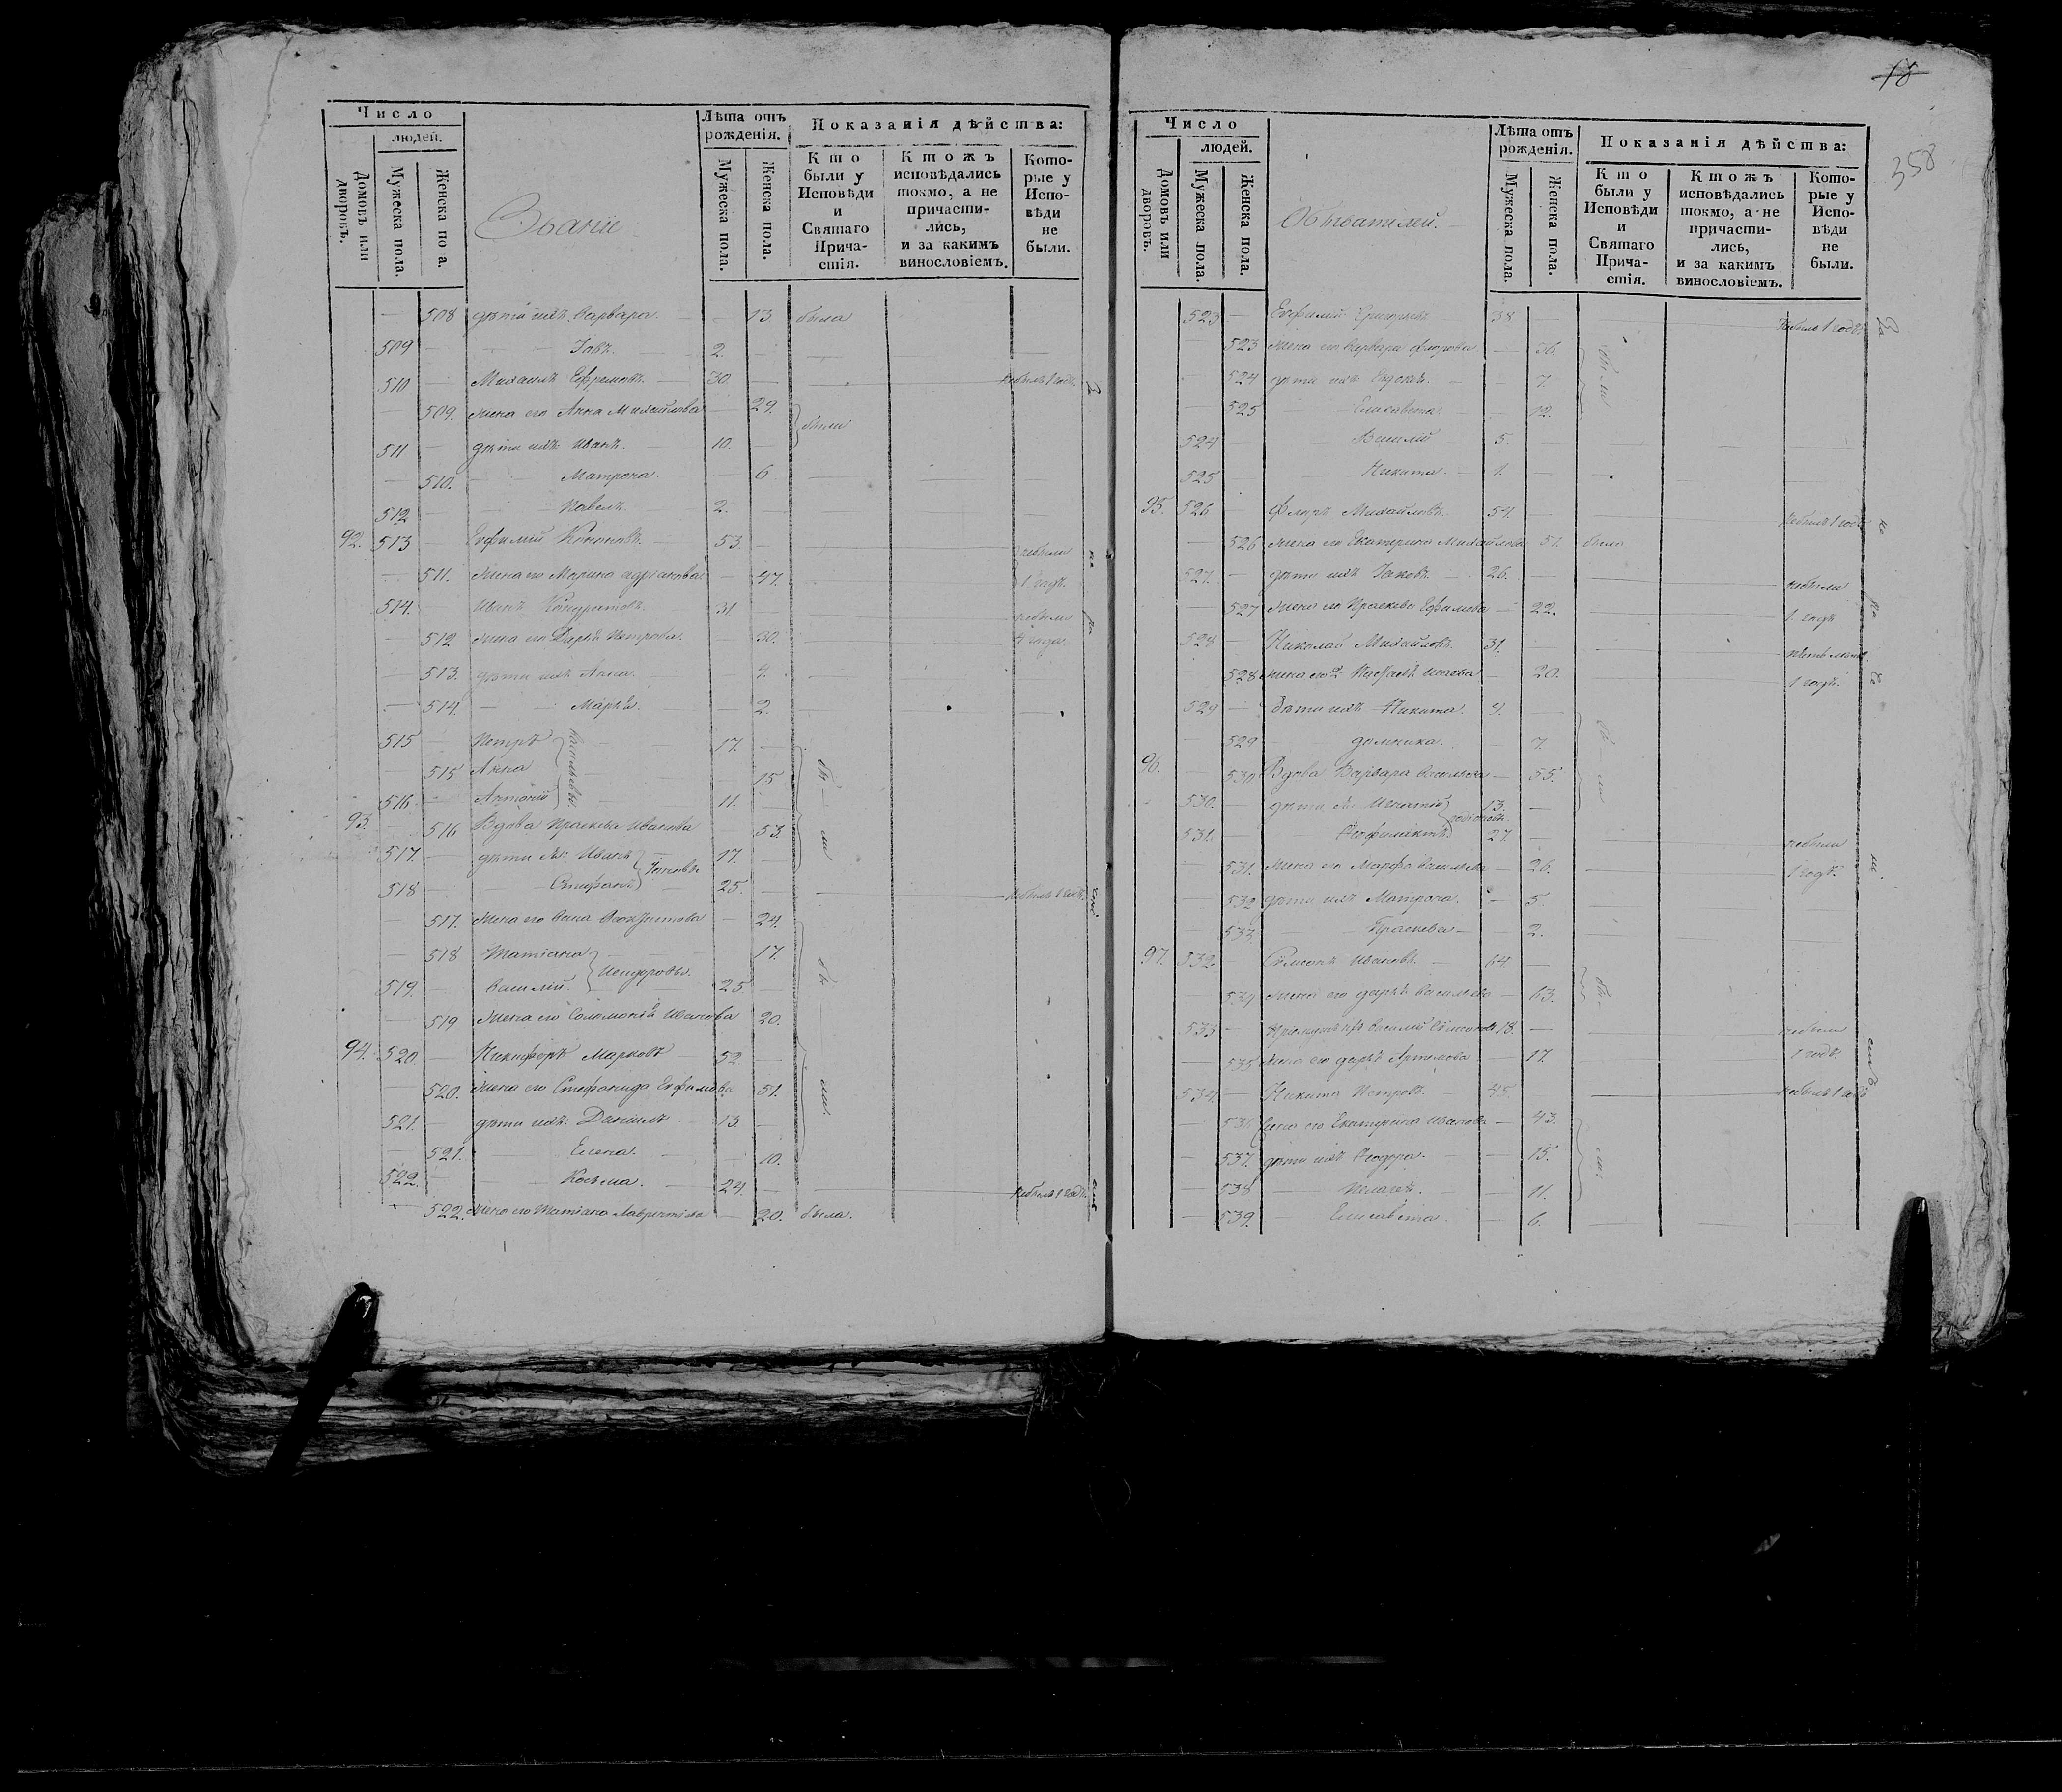 Число
людей.
Домовъ или дворовъ.
Мужеска пола.
Женска по а.
Званіе
Лѣта отъ рожденія.
Мужеска пола.
Женска пола.
Показанія дѣйства:
Кто были у Исповѣди и Святаго Прича-стія.
Ктожъ исповѣдались токмо, а не причасти-лись, и за какимъ винословіемъ.
Кото-рые у Испо-вѣди не были.
508 дѣти ихъ Варвара. 13. была
509 Іовъ. 2.
510 Михаилъ Ефремовъ. 30. небылъ 1 годъ.
509. жена его Анна Михайлова 29. были
511 дѣти ихъ Иванъ. 10.
510. Матрона. 6
512 Павелъ. 2.
92. 513 Евфимій 53. небыли
511. жена его Марина 47. 1 годъ.
514. Иванъ Кондратовъ. 31 небыли
512 жена его Дарья Петрова. 30.
513. дѣти ихъ Анна. 4.
514. Марѳа. 2.
515 Петръ 17.
515 Анна 15
516 Антоній 11.
Васильевы.
бы – ли
93. 516 Вдова Праскева Иванова 53.
517. дѣти ея: Иванъ 17.
518 Стефанъ 25. небылъ 1 годъ.
517. жена его 24.
518 Татіана 17.
519. Василій. 25
519 жена его Соломонія Иванова 20.
бы – ли.
94. 520. Никифоръ Марковъ 52.
520. жена его Стефанида Евфимова 51.
521. дѣти ихъ: Даніилъ 13.
521. Елена. 10.
522. Косьма. 24. небылъ 1 годъ.
522. жена его Татіана Лаврентіева 20. была.
18
358
Число
людей.
Домовъ или дворовъ.
Мужеска пола.
Женска пола.
Обывателей.
Лѣта отъ рожденія.
Мужеска пола.
Женска пола.
Показанія дѣйства:
Кто были у Исповѣди и Святаго Прича-стія.
Ктожъ исповѣдались токмо, а не причасти-лись, и за какимъ винословіемъ.
Кото-рые у Испо-вѣди не были.
523 Евфимій Григорьевъ 38 небылъ 1 годъ.
523 жена его Варвара Флорова 36. были
524 дѣти ихъ 7.
525 Елисавета 12.
524 Василій 5.
525 Никита. 1.
95. 526 Флоръ Михайловъ. 54. небылъ 1 годъ
526 жена его Екатерина Михайлова 51. была
527. дѣти ихъ Іаковъ. 26. небыли
527 жена его Праскева Ефимова 22. 1. годъ
528 Николай Михайловъ. 31.
528 жена его 20. 1 годъ.
529 дѣти ихъ Никита. 9.
529 домника. 7.
96. 530 Вдова Варвара Васильева 55.
530. дѣти ея 13.
531. 27. небыли
531. жена его Марфа Васильева 26. 1 годъ.
532 дѣти ихъ Матрона. 5.
533. Праскева 2.
97. 532. Симеонъ Ивановъ. 64
534 жена его Дарья Васильева 63.
533 Василій 18. небыли
535 жена его Дарья Артемова 17. 1 годъ.
534. Никита Петровъ. 45. небылъ 1 годъ
536 жена его Екатерина Иванова 43.
537. дѣти ихъ Ѳеодора. 15.
538 Пелагея. 11.
539. Елисавета. 6.